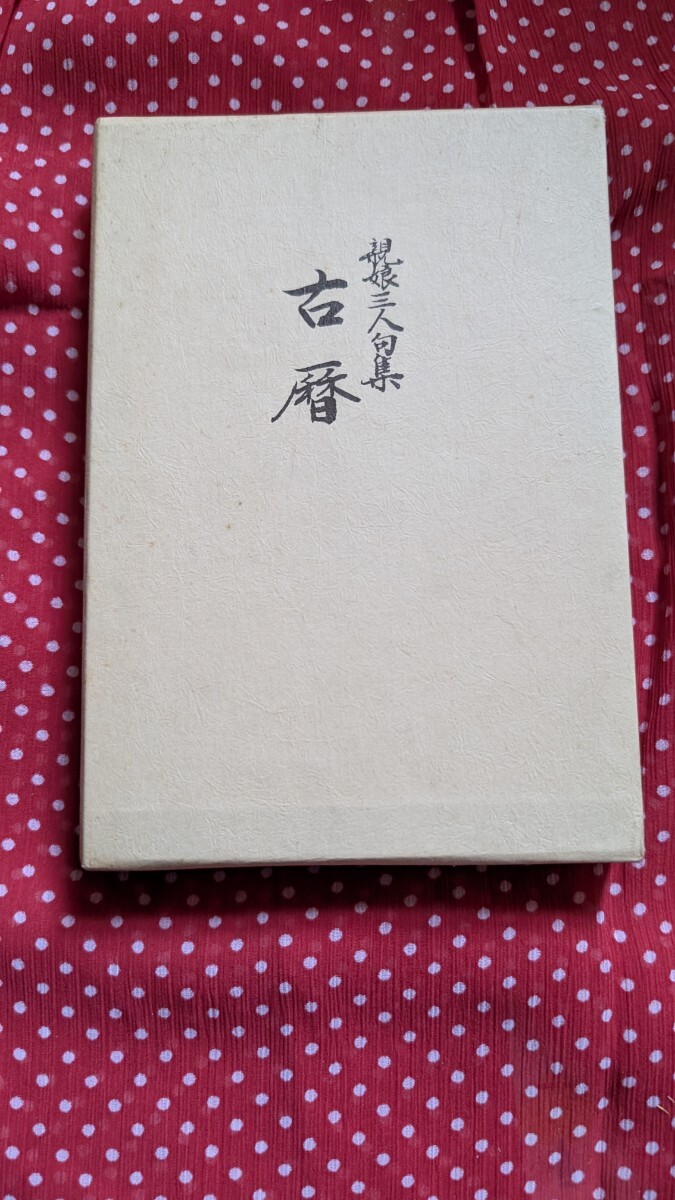 親娘三人句集
古暦